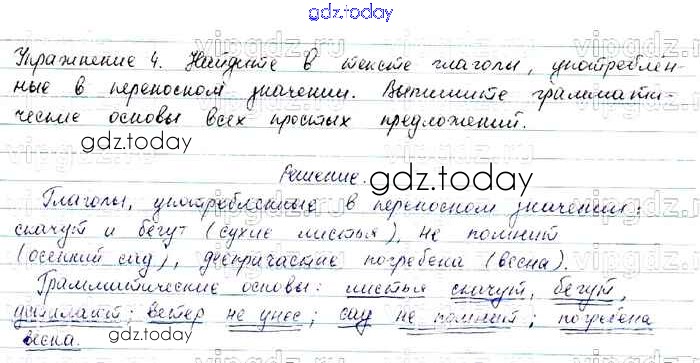 gdz.today
Упражнение 4. Найдите в тексте глаголы, употреблен-
ные в переносном значении. Выпишите граммати-
ческие основы всех простых предложений.
gdz.today
Решение.
gdz.today
Глаголы, употребленные в переносном значении:
скачут и бегут (сухие листья), не помнит
(осенний сад), деепричастие погребена (весна).
Грамматические основы: листья скачут, бегут,
устилают; ветер не унес; сад не помнит; погребена
весна.
gdz.today